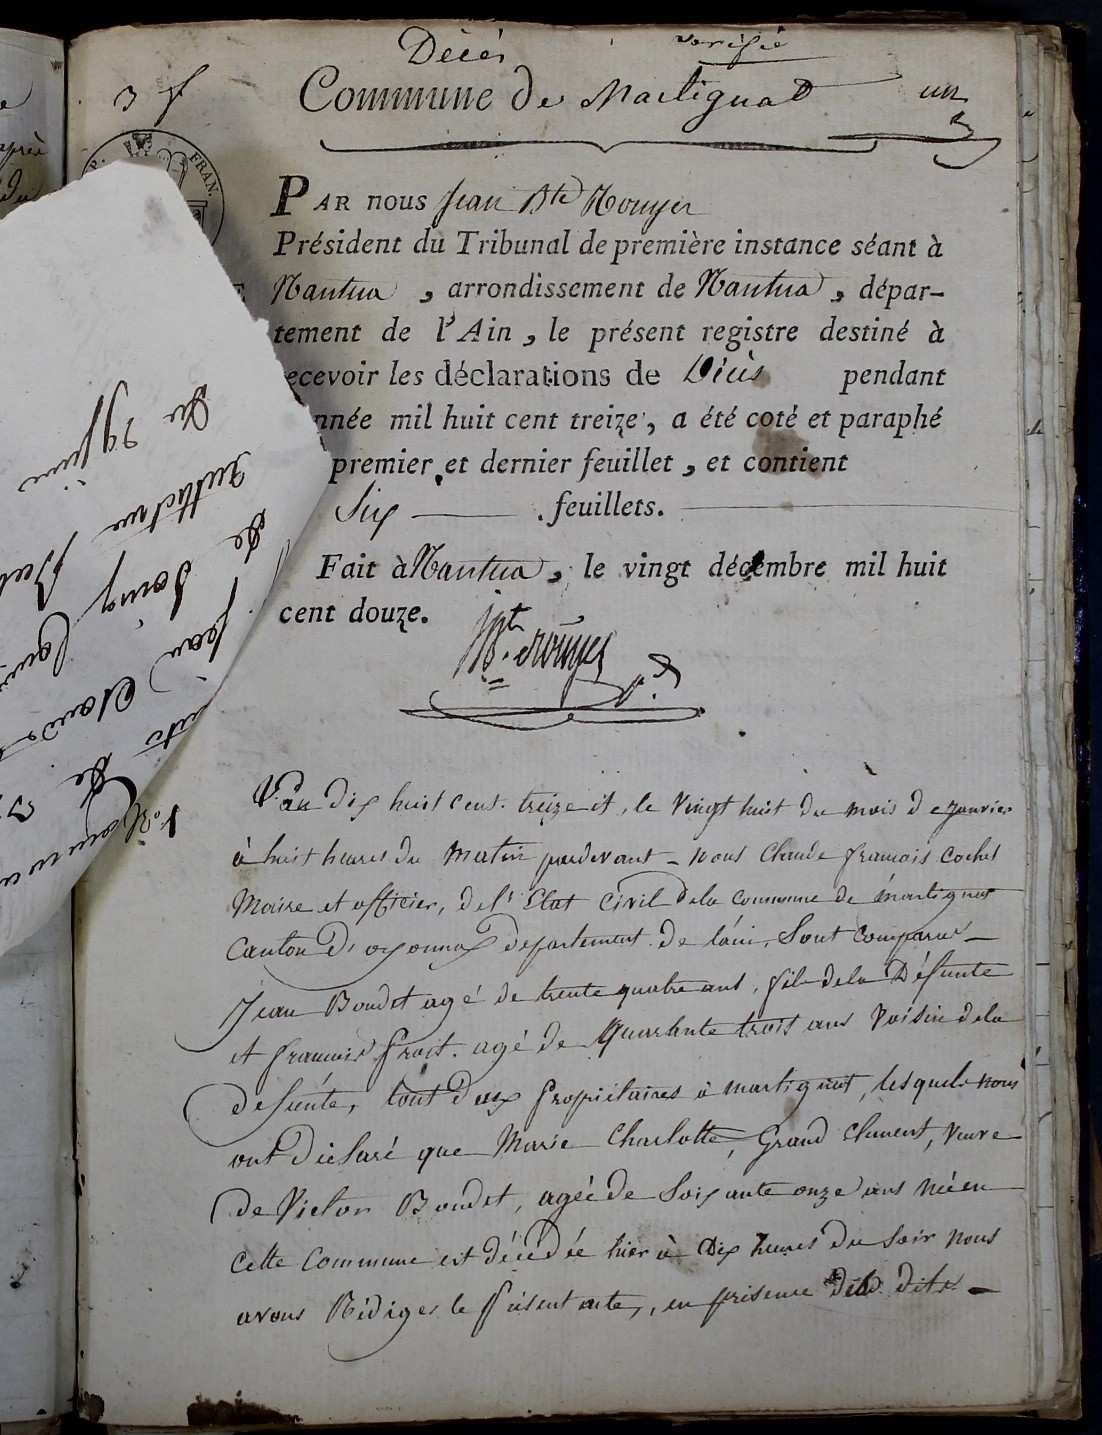 Décès vérifié
3 f
Commune de Martignat un
P. FRAN.
PAR nous Jean Bte Rouyer
Président du Tribunal de première instance séant à
Nantua, arrondissement de Nantua, dépar-
tement de l'Ain, le présent registre destiné à
ecevoir les déclarations de Décès pendant
nnée mil huit cent treize, a été coté et paraphé
premier et dernier feuillet, et contient
Six feuillets.
Fait à Nantua, le vingt décembre mil huit
cent douze.
Bte Rouyer
L'an dix huit cent treize et, le vingt huit du mois de janvier
à huit heures du matin pardevant - nous Claude françois Cochet
Maire et officier, de l'Etat Civil de la commune de martignat
Canton d'oyonnax departement de l'ain, Sont comparus -
Jean Boudet agé de trente quatre ans, fils de la Défunte
et françois froit. agé de quarante trois ans Voisin de la
defunte, tout deux propriétaires à martignat, lesquels nous
ont Déclaré que Marie Charlotte, Grand Clement, veuve
de Victor Boudet, agée de Soixante onze ans née en
cette Commune est décédée hier à Dix heures du Soir nous
avons Rédiger le présent acte, en présence des dits -
de 29 juin
de
jean Claude
de